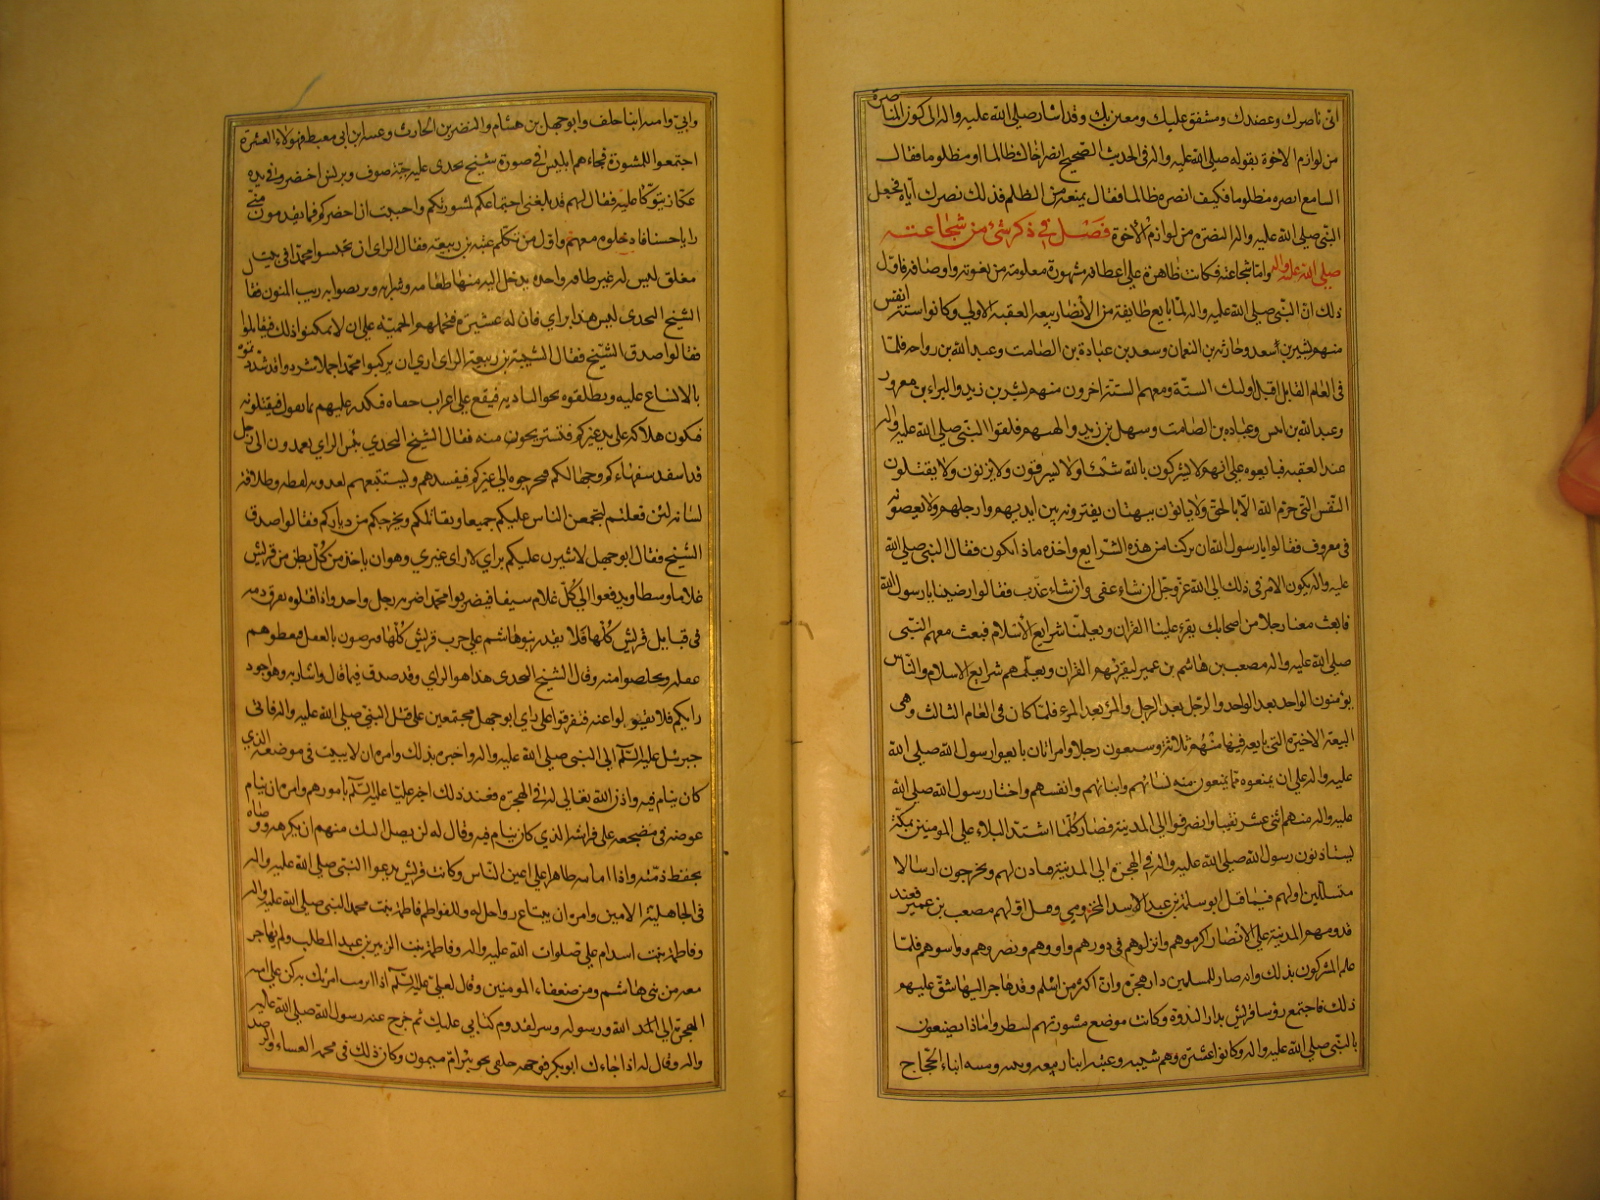 انى ناصرك وعضدك ومشفق عليك ومعين بك وقد اشار صلى الله عليه واله الى كون المناصرة
من لوازم الاخوة بقوله صلى الله عليه واله فى الحديث الصحيح انصر اخاك ظالما او مظلوما فقال
السامع انصره مظلوما فكيف انصره ظالما فقال يمنعه من الظلم فذلك نصرك اياه فجعل
النبى صلى الله عليه واله النصره من لوازم الاخوة فصل فى ذكر شئ من شجاعته
صلى الله عليه واله واما شجاعته فكانت ظاهرة على اعطافه مشهورة معلومة من نعوته واوصافه فاول
ذلك ان النبى صلى الله عليه واله لما بايع طايفة من الانصار بيعه العقبه الاولى وكانوا ستة انفس
منهم بشير بن سعد وحارثه بن النعمان وسعد بن عبادة بن الصامت وعبد الله بن رواحه فلما
فى العام القابل اقبل اولئك الستة ومعهم الستة اخرون منهم بشر بن زيد والبراء بن معرور
وعبد الله بن انس وعباده بن الصامت وسهل بن زيد والهيثم فلقوا النبى صلى الله عليه واله
عند العقبه فبايعوه على انهم لا يشركون بالله شيئا ولا يسرقون ولا يزنون ولا يقتلون
النفس التى حرم الله الا بالحق ولا ياتون ببهتان يفترونه بين ايديهم وارجلهم ولا يعصونه
فى معروف فقالوا يا رسول الله ان تركنا من هذه الشرايع واحدة ماذا يكون فقال النبى صلى الله
عليه واله يكون الامر فى ذلك الى الله عز وجل ان شاء عفى وان شاء عذب فقالوا رضينا يا رسول الله
فابعث معنا رجلا من اصحابك يقرء علينا القران ويعلمنا شرايع الاسلام فبعث معهم النبى
صلى الله عليه واله مصعب بن هاشم بن عمير ليقرئهم القران ويعلمهم شرايع الاسلام والناس
يؤمنون الواحد بعد الواحد والرجل بعد الرجل والمرء بعد المرء فلما كان فى العام الثالث وهى
البيعة الاخيرة التى بايعه فيها منهم ثلاثة وسبعون رجلا وامراتان بايعوا رسول الله صلى الله
عليه واله على ان يمنعوه مما يمنعون منه نسائهم وابنائهم وانفسهم واختار رسول الله صلى الله
عليه واله منهم اثنى عشر نقيبا وانصرفوا الى المدينة فصار كلما اشتد البلاء على المومنين بمكة
يستاذنون رسول الله صلى الله عليه واله فى الهجرة الى المدينة فياذن لهم ويخرجون ارسالا
متسللين اولهم فيما قيل ابو سلمة بن عبد الاسد المخزومى وقيل اولهم مصعب بن عمير فعند
قدومهم المدينة على الانصار اكرموهم وانزلوهم فى دورهم واووهم ونصروهم وواسوهم فلما
علم المشركون بذلك وانه صار للمسلمين دار هجرة وان اكثر من اسلم وقد هاجر اليها شق عليهم
ذلك فاجتمع رؤسا قريش بدار الندوة وكانت موضع مشورتهم لينظروا ماذا يصنعون
بالنبى صلى الله عليه واله وكانوا عشرة وهم شيبه وعتبه ابنا ربيعه ونبيه ومنبه ابناء الحجاج
وابى وامية ابنا خلف وابو جهل بن هشام والنضر بن الحارث وعقبه ابن ابى معيط فهولاء العشرة
اجتمعوا للمشورة فجاءهم ابليس فى صورة شيخ نجدى عليه جبة صوف وبرنس اخضر وفى يده
عكاز يتوكا عليه فقال لهم قد بلغنى اجتماعكم لمشورتكم واحببت ان احضركم فما تعدمون منى
رايا حسنا فادخلوه معهم واول من تكلم عتبه بن ربيعه فقال الراى ان تحبسوا محمدا فى بيت
مغلق ليس له غير طاقه واحده يدخل اليه منها طعامه وشرابه وتربصوا به ريب المنون فقال
الشيخ النجدى ليس هذا براى فان له عشيرة فتحملهم الحمية على ان لا يمكنوا ذلك فيقاتلوا
فقالوا صدق الشيخ فقال شيبة بن ربيعة الراى ارى ان يركبوا محمدا جملا شرودا وقد شدتموه
بالانساع عليه ويطلقوه نحو البادية فيقع على اعراب جفاه فيكدر عليهم بما يقول فيقتلونه
فيكون هلاكه على يد غيركم فتستريحون منه فقال الشيخ النجدى بئس الراى تعمدون الى رجل
قد افسد سفهاءكم وجهالكم فتخرجوه الى غيركم فيفسدهم ويستتبعهم بعذوبة لفظه وطلاقة
لسانه لئن فعلتم ليجمعن الناس عليكم جميعا ويقاتلكم ويخرجكم من دياركم فقالوا صدق
الشيخ فقال ابو جهل لاشيرن عليكم براى لا راى غيرى وهو ان ياخذ من كل بطن من قريش
غلاما وسطا ويدفعوا الى كل غلام سيفا فيضربوا محمدا ضربة رجل واحد واذا قتلوه تفرق دمه
فى قبايل قريش كلها فلا يقدر بنو هاشم على حرب قريش كلها فيرضون بالعقل فيعطوهم
عقله ويخلصوا منه وقال الشيخ النجدى هذا هو الراى وقد صدق فيما قال واشار به وهو اجود
رايكم فلا تعدلوا عنه فتفرقوا على راى ابو جهل مجتمعين على قتل النبى صلى الله عليه واله فاتى
جبرئيل عليه السلام الى النبى صلى الله عليه واله واخبره بذلك وامره ان لا يبيت فى موضعه الذى
كان ينام فيه واذن الله تعالى له فى الهجرة فعند ذلك اخبر عليا عليه السلام بامورهم وامره ان ينام
عوضه فى مضجعه على فراشه الذى كان ينام فيه وقال له لن يصل اليك منهم امر تكرهه ووصاه
بحفظ ذمته واداء امانته ظاهرا على اعين الناس وكانت قريش يدعوا النبى صلى الله عليه واله
فى الجاهلية الامين وامره ان يبتاع رواحل له وللفواطم فاطمة بنت محمد النبى صلى الله عليه واله
وفاطمة بنت اسد ام على صلوات الله عليه واله وفاطمة بنت الزبير بن عبد المطلب ولم يهاجر
معه من بنى هاشم ومن ضعفاء المومنين وقال لعلى عليه السلام اذا ابرمت امرتك به كن على اهبة
الهجرة الى الله ورسوله وسر لقدوم كتابى عليك ثم خرج عنه رسول الله صلى الله عليه
واله وقال له اذا جاءك ابو بكر فوجهه خلفى نحو بئر ام ميمون وكان ذلك فى فحمة العشاء والرصد